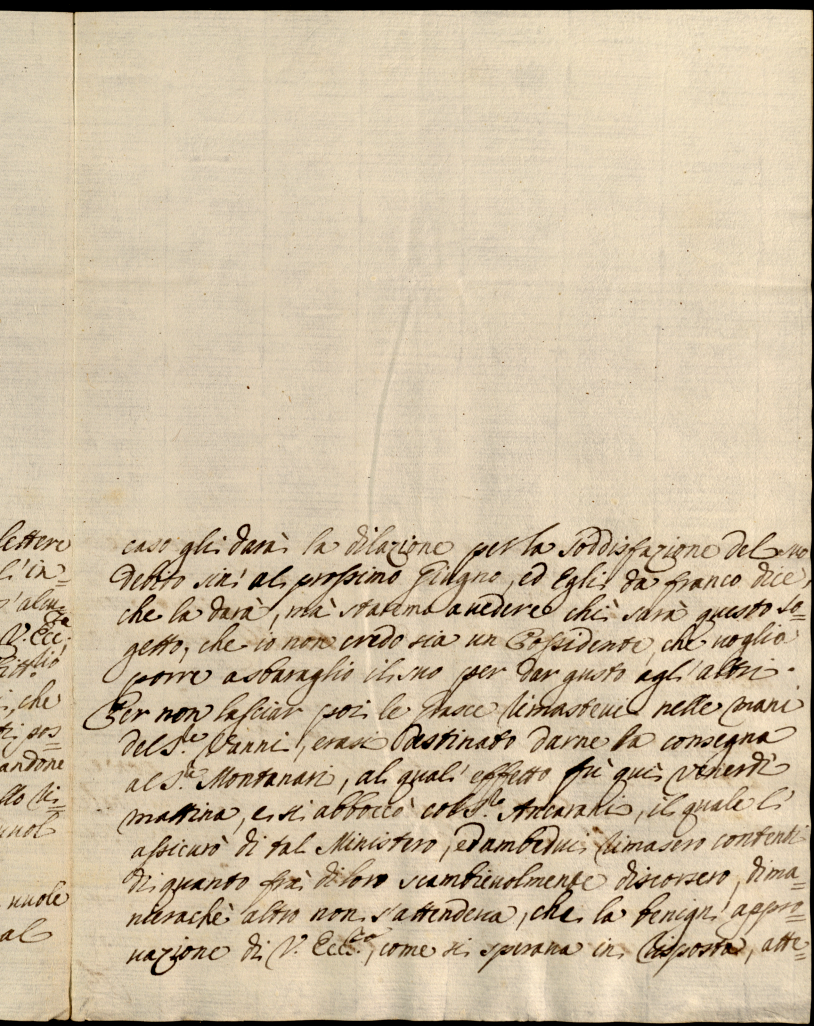 lettere
l'in=
s'alcu=
V. Ecc:za
, che
sos=
andone
llo Ri=
vuole
al
caso gli darà la dilazione per la Soddisfazione del suo
Debito sin' al prossimo Giugno, ed Egli da franco dice,
che la darà, mà staremo a vedere chi sarà questo so=
getto, che io non credo sia un Possidente, che voglia
porre a sbaraglio il suo per dar gusto agl'altri.
Per non lasciar poi le Grasce rimastevi nelle mani
del S.re Vanni, erasi destinato darne la consegna
al S.re Montanari, al qual' effetto fù qui Venerdì
mattina, e si abboccò col S.re Ancarani, il quale l'
assicurò di tal Ministero, ed ambedui rimasero contenti
di quanto frà di loro scambievolmente discorsero, dima=
nierachè altro non s'attendeva, che la benign' appro=
vazione di V. Ecc.za, come si sperava in risposta, atte=